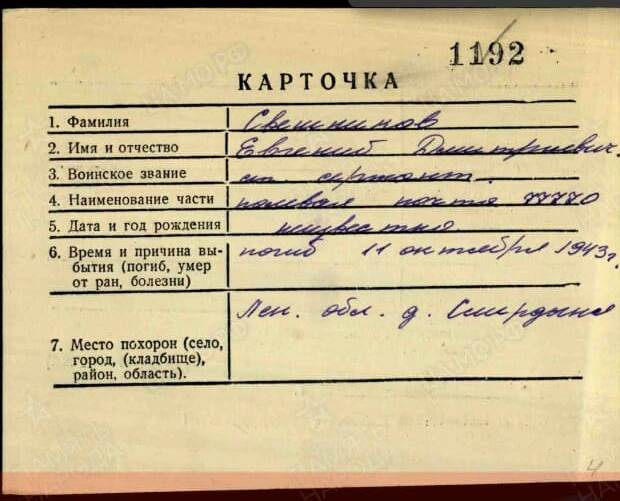 1192
КАРТОЧКА
1. Фамилия Свешников
2. Имя и отчество Евгений Дмитриевич.
3. Воинское звание ст. сержант.
4. Наименование части полевая почта 77770
5. Дата и год рождения неизвестно
6. Время и причина вы- погиб 11 октября 1943 г.
бытия (погиб, умер
от ран, болезни)
Лен. обл. д. Смердыня
7. Место похорон (село,
город, (кладбище),
район, область).
4